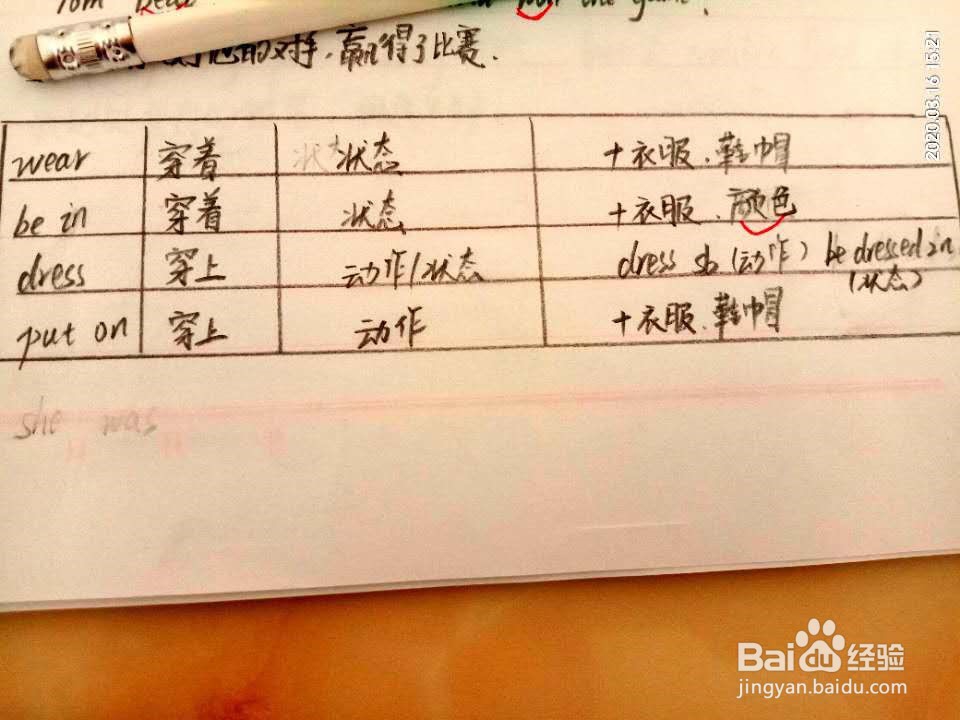 Tom
the game.
的对手,赢得了比赛.
wear 穿着 状态 状态 +衣服、鞋帽
be in 穿着 状态 +衣服、颜色
dress 穿上 动作/状态 dress sb (动作) be dressed in (状态)
put on 穿上 动作 +衣服、鞋帽
she was
2020.03.16 15:21
Baidu经验
jingyan.baidu.com